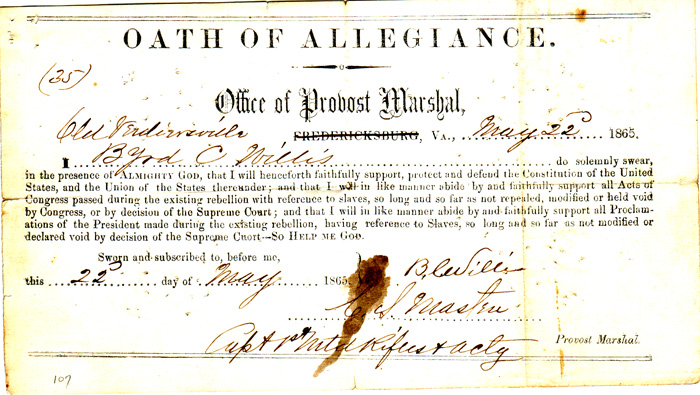 OATH OF ALLEGIANCE.
(35)
Office of Provost Marshal,
Old Verdiersville FREDERICKSBURG, VA., May 22d 1865.
I Byrd C Willis do solemnly swear,
in the presence of ALMIGHTY GOD, that I will henceforth faithfully support, protect and defend the Constitution of the United
States, and the Union of the States thereunder; and that I will in like manner abide by and faithfully support all Acts of
Congress passed during the existing rebellion with reference to slaves, so long and so far as not repealed, modified or held void
by Congress, or by decision of the Supreme Court; and that I will in like manner abide by and faithfully support all Proclam-
ations of the President made during the existing rebellion, having reference to Slaves, so long and so far as not modified or
declared void by decision of the Supreme Cuort—So HELP ME GOD.
Sworn and subscribed to, before me,
this 22d day of May 1865 B.C. Willis
C S Masten
Capt 1st Rifles & actg Provost Marshal.
107